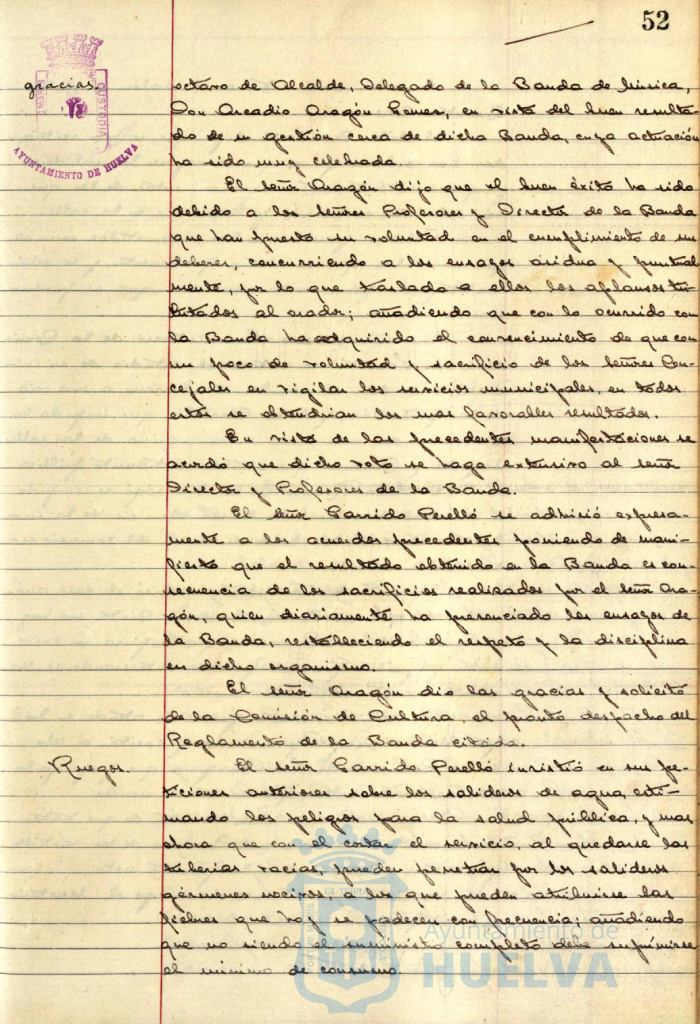 52
gracias.
octavo de Alcalde, Delegado de la Banda de Música,
Don Arcadio Aragón Gomez, en vista del buen resulta-
do de su gestión cerca de dicha Banda, cuya actuación
ha sido muy celebrada.
El señor Aragón dijo que el buen éxito ha sido
debido a los señores Profesores y Director de la Banda
que han puesto su voluntad en el cumplimiento de sus
deberes, concurriendo a los ensayos asidua y puntual
mente, por lo que traslado a ellos los aplausos tri-
butados al orador; añadiendo que con lo ocurrido con
la Banda ha adquirido el convencimiento de que con
un poco de voluntad y sacrificio de los señores Con-
cejales en vigilar los servicios municipales, en todos
estos se obtendrian los mas favorables resultados.
En vista de las precedentes manifestaciones se
acordó que dicho voto se haga extensivo al señor
Director y Profesores de la Banda.
El señor Garrido Perelló se adhirió expresa-
mente a los acuerdos precedentes poniendo de mani-
fiesto que el resultado obtenido en la Banda es con-
secuencia de los sacrificios realizados por el señor Ara-
gón, quien diariamente ha presenciado los ensayos de
la Banda, restableciendo el respeto y la disciplina
en dicho organismo.
El señor Aragón dio las gracias y solicitó
de la Comisión de Cultura el pronto despacho del
Reglamento de la Banda citada.
Ruegos.
El señor Garrido Perelló insistió en sus pe-
ticiones anteriores sobre los salideros de agua, esti-
mando los peligros para la salud pública, y mas
ahora que con el cortar el servicio, al quedarse las
tuberias vacias, pueden penetrar por los salideros
gérmenes nocivos, a los que pueden atribuirse las
fiebres que hoy se padecen con frecuencia; añadiendo
que no siendo el suministro completo debe suprimirse
el minimo de consumo.
AYUNTAMIENTO DE HUELVA
Ayuntamiento de
HUELVA